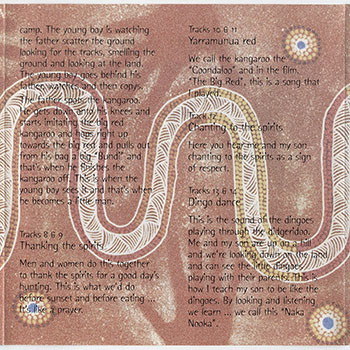 camp. The young boy is watching
the father scatter the ground
looking for the tracks, smelling the
ground and looking at the land.
The young boy goes behind his
father, watches and then copys.
The father spots the kangaroo.
He gets down onto his knees and
starts imitating the big red
kangaroo and hops right up
towards the big red and pulls out
from his bag a big "Bundi" and
that's when he finishes the
kangaroo off. This is when the
young boy sees it and that's when
he becomes a little man.
Tracks 8 & 9
Thanking the spirits
Men and women do this together
to thank the spirits for a good day's
hunting. This is what we'd do
before sunset and before eating ...
It's like a prayer.
Tracks 10 & 11
Yarramunua red
We call the kangaroo the
"Coondaloo" and in the film,
"The Big Red", this is a song that
I played.
Track 12
Chanting to the spirits
Here you hear me and my son
chanting to the spirits as a sign
of respect.
Tracks 13 & 14
Dingo dance
This is the sound of the dingoes
playing through the didgeridoo.
Me and my son are up on a hill
and we're looking down on the land
and can see the little dingoes
playing with their parents. This is
how I teach my son to be like the
dingoes. By looking and listening
we learn ... we call this "Naka
Nooka".